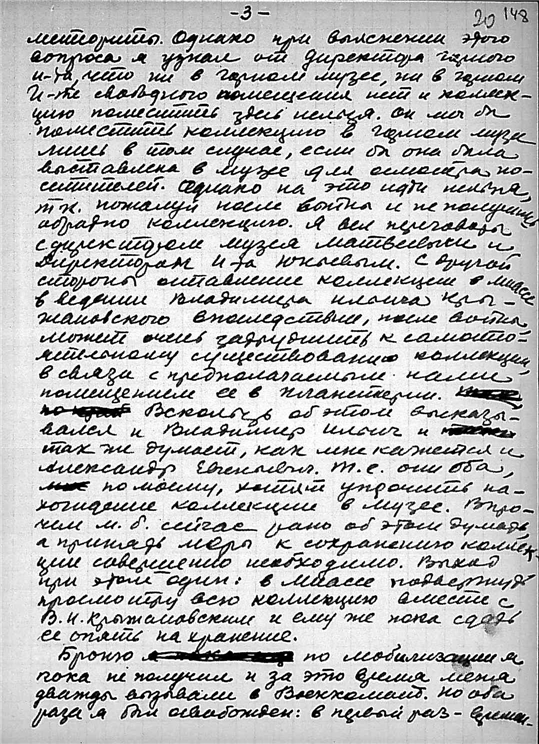 -3-
20 148
метеориты. Однако при выяснении этого
вопроса я узнал от директора горного
и-та, что ни в горном музее, ни в горном
И-те свободного помещения нет и коллек-
цию поместить здесь нельзя. Он мог бы
поместить коллекцию в горном музее
лишь в том случае, если бы она была
выставлена в музее для осмотра по-
сетителей. Однако на это идти нельзя,
т.к. пожалуй после войны и не получишь
обратно коллекцию. Я вел переговоры
с директором музея Матвеевым и
директором и-та Юневым. С другой
стороны оставление коллекции в Миассе
в ведении Владимира Ильича Кры-
жановского впоследствие, после войны,
может очень затруднить к самосто-
ятельному существованию коллекции,
в связи с предполагаемым нами
помещением ее в планетарии.
Вскользь об этом высказы-
вался и Владимир Ильич и
так же думает, как мне кажется и
Александр Евгеньевич. Т.е. они оба,
по моему, хотят упрочить на-
хождение коллекции в музее. Впро-
чем м.б. сейчас рано об этом думать,
а принять меры к сохранению коллек-
ции совершенно необходимо. Выход
при этом один: в Миассе
просмотрю всю коллекцию вместе с
В.И. Крыжановским и ему же пока сдать
ее опять на хранение.
Броню по мобилизации я
пока не получил и за это время меня
дважды вызывали в Военкомат. Но оба
раза я был освобожден: в первый раз -